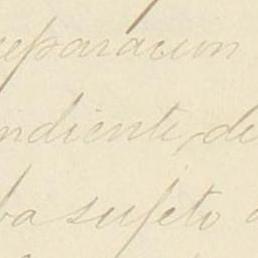 reparacion
ndiente, de
ba sujeto